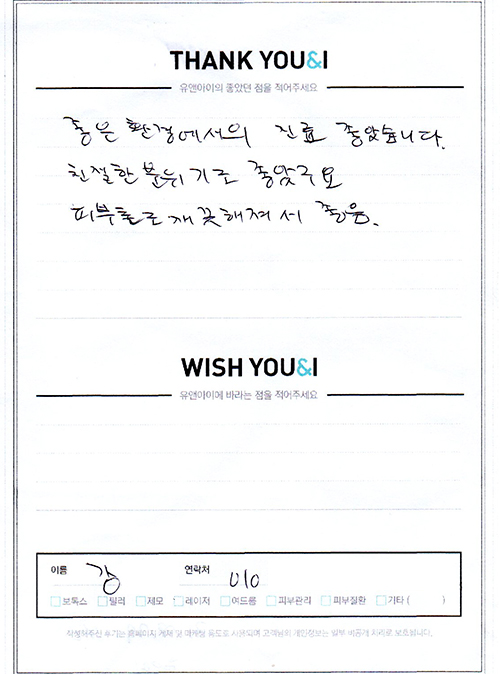 THANK YOU&I
유앤아이의 좋았던 점을 적어주세요
좋은 환경에서의 진료 좋았습니다.
친절한 분위기도 좋았구요
피부톤도 깨끗해져서 좋음.
WISH YOU&I
유앤아이에 바라는 점을 적어주세요
이름 강 연락처 010
보톡스 필러 제모 레이저 여드름 피부관리 피부질환 기타 ( )
작성해주신 후기는 홈페이지 게재 및 마케팅 용도로 사용되며 고객님의 개인정보는 일부 비공개 처리로 보호됩니다.